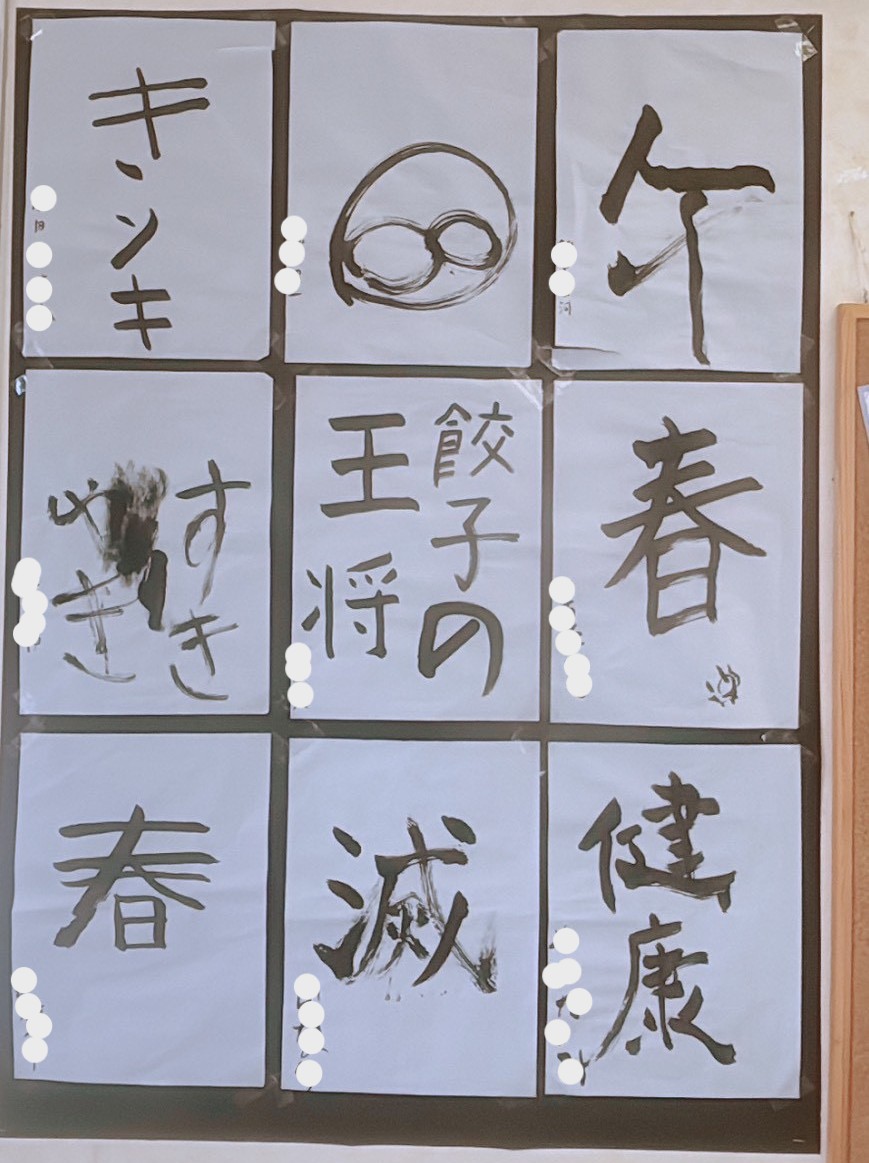 キンキ
春
餃子の
王将
すき
やき
健康
滅
春